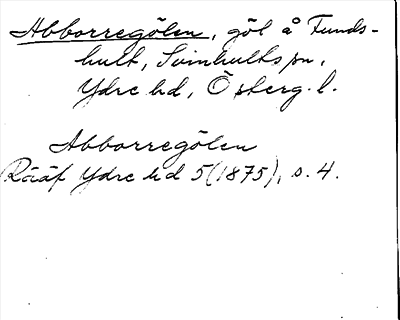 Abborregölen, göl å Funds-
hult, Svinhults sn,
Ydre hd, Österg. l.
Abborregölen
Rääf Ydre hd 5 (1875), s. 4.